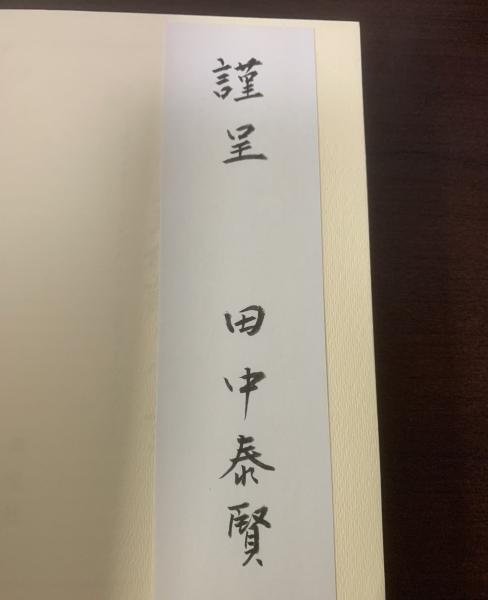 謹呈　田中泰賢